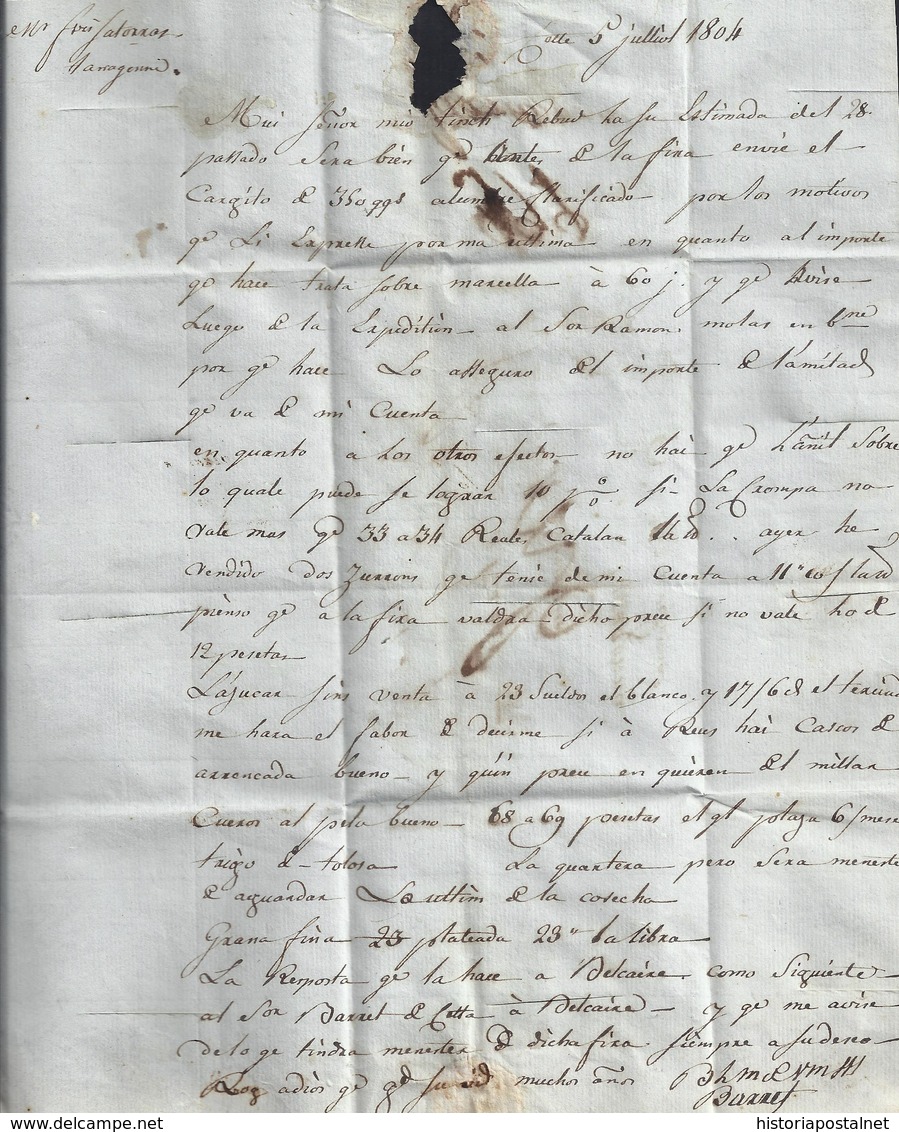 Cette 5 julliol 1804
tarragonne.
Mui señor mio tinch Rebud ha su Estimada del 28
passado sera bien qe antes de la fira envie el
Cargito de 350 qqs alumbre clarificado por los motivos
qe Li Expresse por ma ultima en quanto al importe
qe hace trata sobre marcella à 60 j. y qe Avise
Luego de la Expedition al Sor Ramon molas en bne
por qe hace Lo asseguro del importe de l'amitad
qe va de mi Cuenta
en quanto a los otros efectos no hai qe l'añil sobre
lo quale puede se lograr 10 p% si La Crompa no
vale mas qe 33 a 34 Reales Catalan .. ayer he
vendido dos zurrons qe tenie de mi Cuenta a 11"
pienso qe a la fira valdra dicho preu si no vale ho de
12 pesetas
L'ajucar sins venta à 23 Sueldos el blanco y 17/6 d el terciad
me hara el fabor de decirme si à Reus hai Cascos de
arrencada bueno y quin preu en quieren del millar
Cueros al pelo bueno 68 a 69 pesetas el ql plaza 6/mese
trigo de tolosa La quartera pero sera meneste
de aguardar Lo ultim de la cosecha
Grana fina 23 plateada 23" la libra
La Resposta qe la hace a Belcaire como Siguiente
al Sor Barret de Cetta à Belcaire y qe me avise
de lo qe tindra menester de dicha fira siempre a su deseo
adios qe gde su vid muchos años
Barret
historiapostalnet